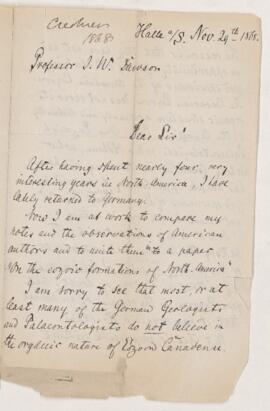 Credner
1868
Halle a/S. Nov. 29th 1868.
Professor J. W. Dawson
Dear Sir!
After having spent nearly four very
interesting years in North America, I have
lately returned to Germany.
Now I am at work to compare my
notes and the observations of American
authors and to unite them to a paper
"On the eozoic formations of North America"
I am sorry to see that most, or at
least many of the German Geologists
and Palaeontologists do not believe in
the organic nature of Eozoon Canadense.